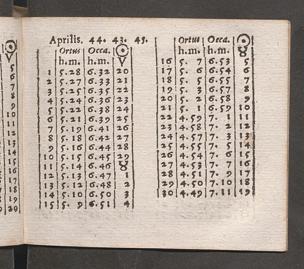 Aprilis. 44. 43. 45.
Ortus Occa. ☉
h.m. h.m. ♈
1 5.28 6.32 20
2 5.27 6.33 21
3 5.26 6.34 22
4 5.24 6.36 23
5 5.22 6.38 24
6 5.21 6.39 25
7 5.19 6.41 26
8 5.18 6.42 27
9 5.16 6.44 28
10 5.15 6.45 29
11 5.14 6.46 ♉
12 5.13 6.47 1
13 5.12 6.48 2
14 5.10 6.50 3
15 5.9 6.51 4
Ortus Occa. ☉
h.m. h.m. ♉
16 5.7 6.53 5
17 5.6 6.54 6
18 5.5 6.55 7
20 5.2 6.58
21 5.1 6.59 10
22 4.59 7.1 11
23 4.58 7.2
24 4.57 7.3 13
26 4.54 7.6 15
27 4.53 7.7 16
28 4.51 7.9 17
29 4.50 7.10 18
30 4.49 7.11 19